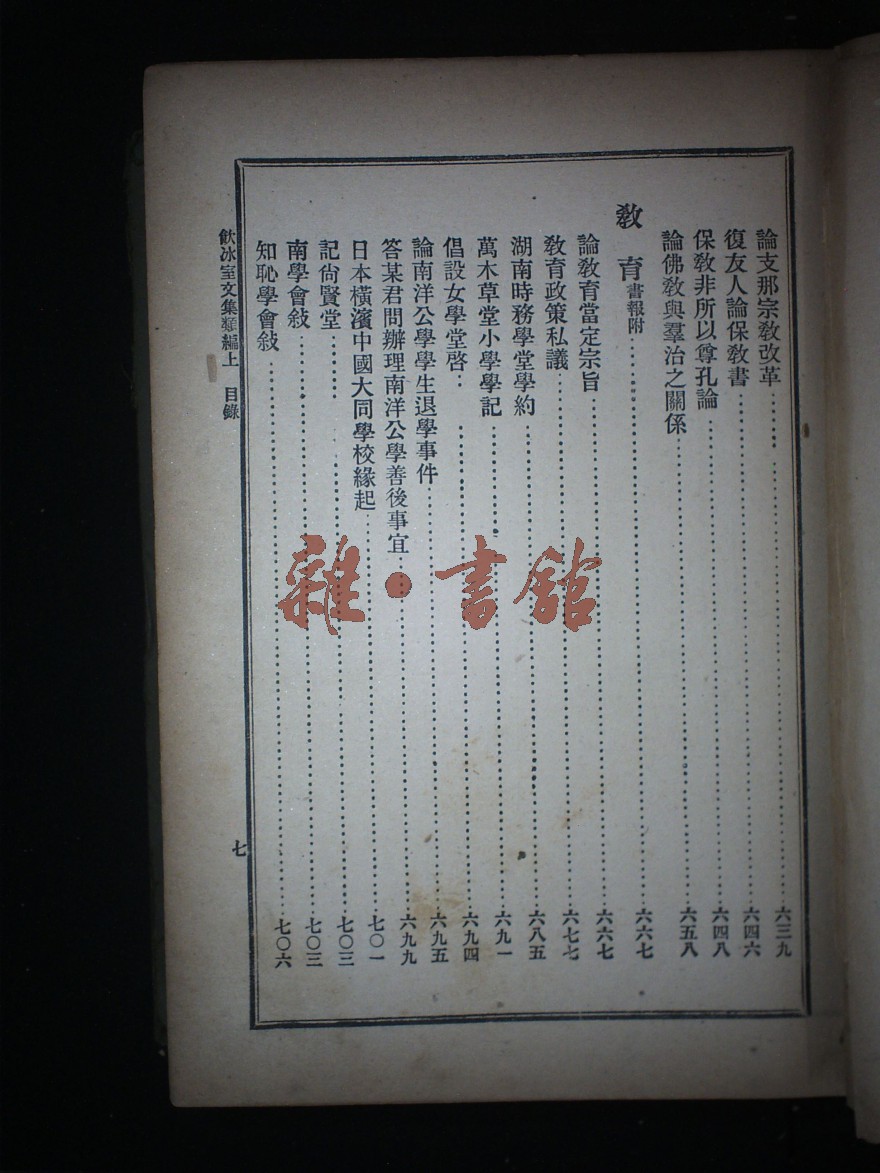 論支那宗敎改革……六三九
復友人論保敎書……六四六
保敎非所以尊孔論……六四八
論佛敎與羣治之關係……六五八
敎育書報附……六六七
論敎育當定宗旨……六六七
敎育政策私議……六七七
湖南時務學堂學約……六八五
萬木草堂小學學記……六九一
倡設女學堂啓……六九四
論南洋公學學生退學事件……六九五
答某君問辦理南洋公學善後事宜……六九九
日本橫濱中國大同學校緣起……七〇一
記尙賢堂……七〇三
南學會敍……七〇三
知恥學會敍……七〇六
飮冰室文集類編上 目錄
七
雜·書館